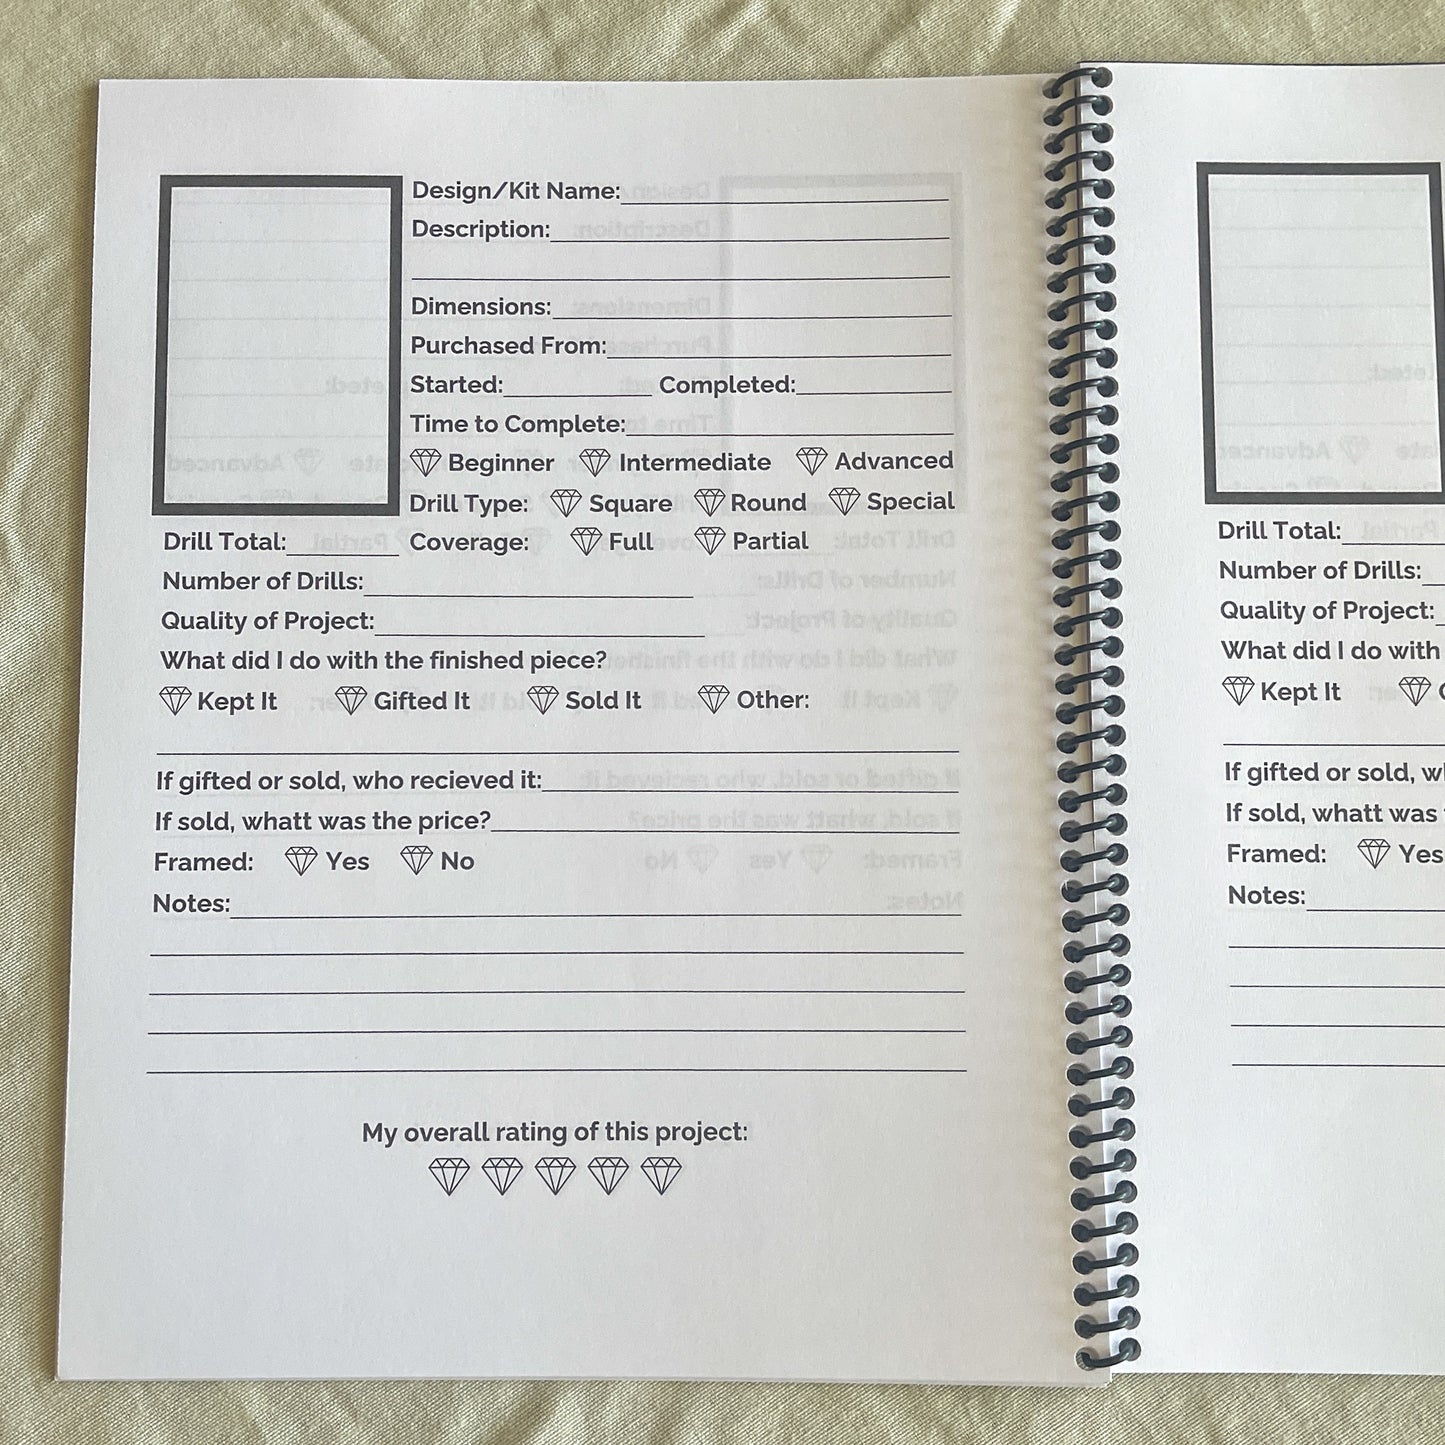 Design/Kit Name:
Description:
Dimensions:
Purchased From:
Started: Completed:
Time to Complete:
Beginner Intermediate Advanced
Drill Type: Square Round Special
Drill Total: Coverage: Full Partial
Number of Drills:
Quality of Project:
What did I do with the finished piece?
Kept It Gifted It Sold It Other:
If gifted or sold, who recieved it:
If sold, whatt was the price?
Framed: Yes No
Notes:
My overall rating of this project:
Drill Total:
Number of Drills:
Quality of Project:
What did I do with
Kept It
If gifted or sold, w
If sold, whatt was
Framed: Yes
Notes: